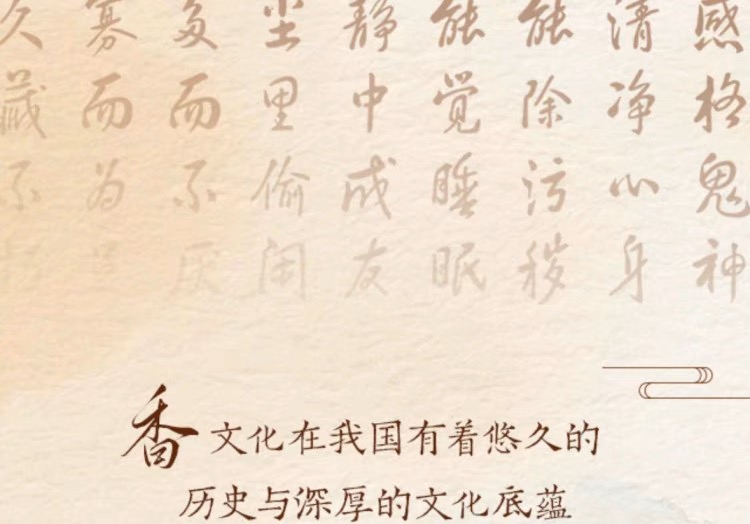 感格鬼神
清净心身
能除污秽
能觉睡眠
静中成友
尘里偷闲
多而不厌
寡而为
久藏不
香文化在我国有着悠久的
历史与深厚的文化底蕴